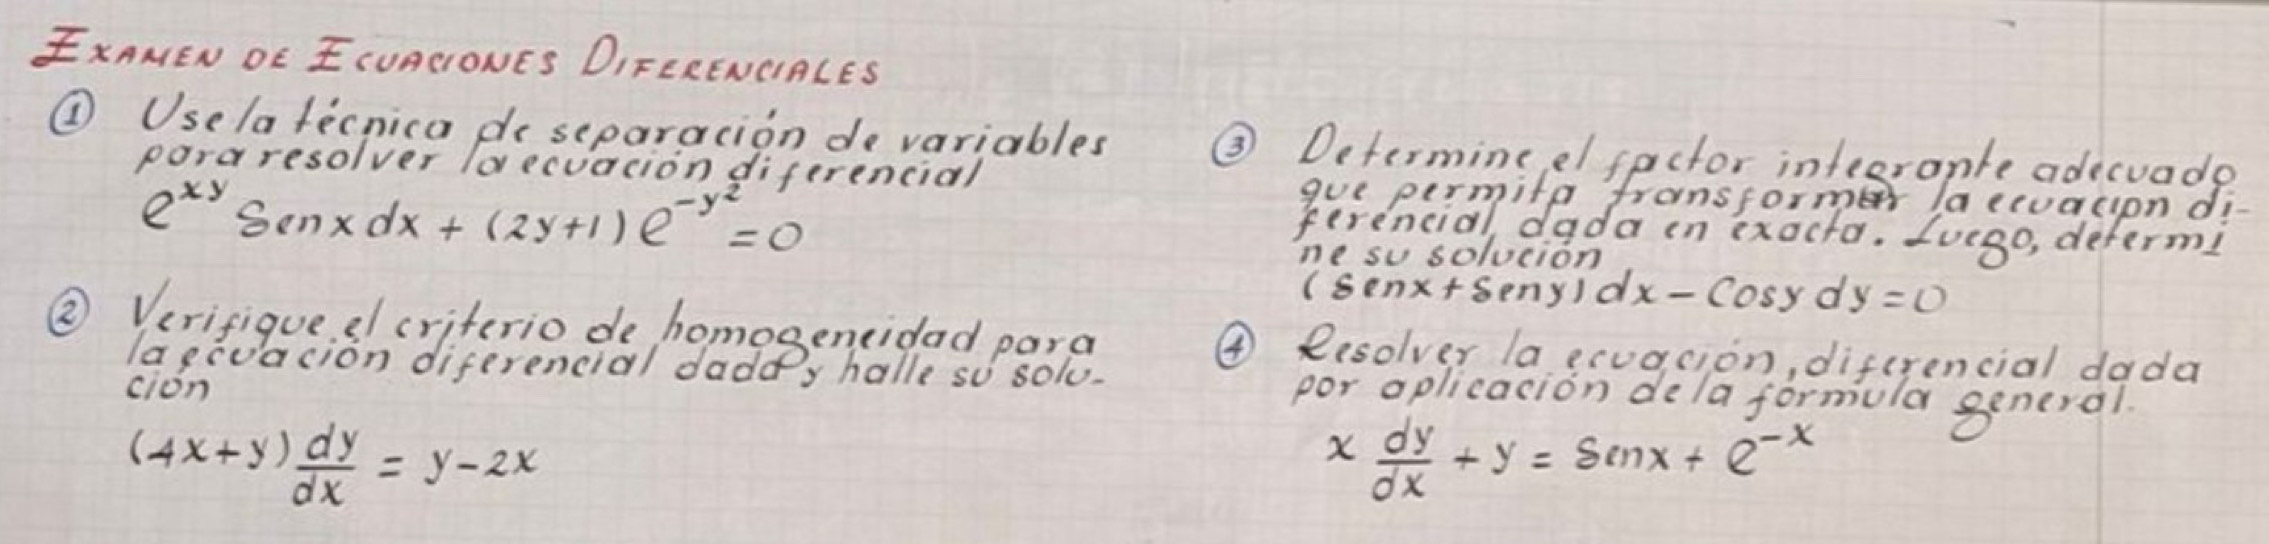 EXAMEN DE ECUACIONES DIFERENCIALES
① Use la técnica de separación de variables
para resolver la ecuación diferencial
e^{xy} Senx dx + (2y+1) e^{-y²} = 0
② Verifique el criterio de homogeneidad para
la ecuación diferencial dada y halle su solu-
ción
(4x+y) dy/dx = y-2x
③ Determine el factor integrante adecuado
que permita transformar la ecuación di-
ferencial dada en exacta. Luego, determi
ne su solución
(Senx+Seny) dx - Cosy dy = 0
④ Resolver la ecuación, diferencial dada
por aplicación de la fórmula general.
x dy/dx + y = Senx + e^{-x}